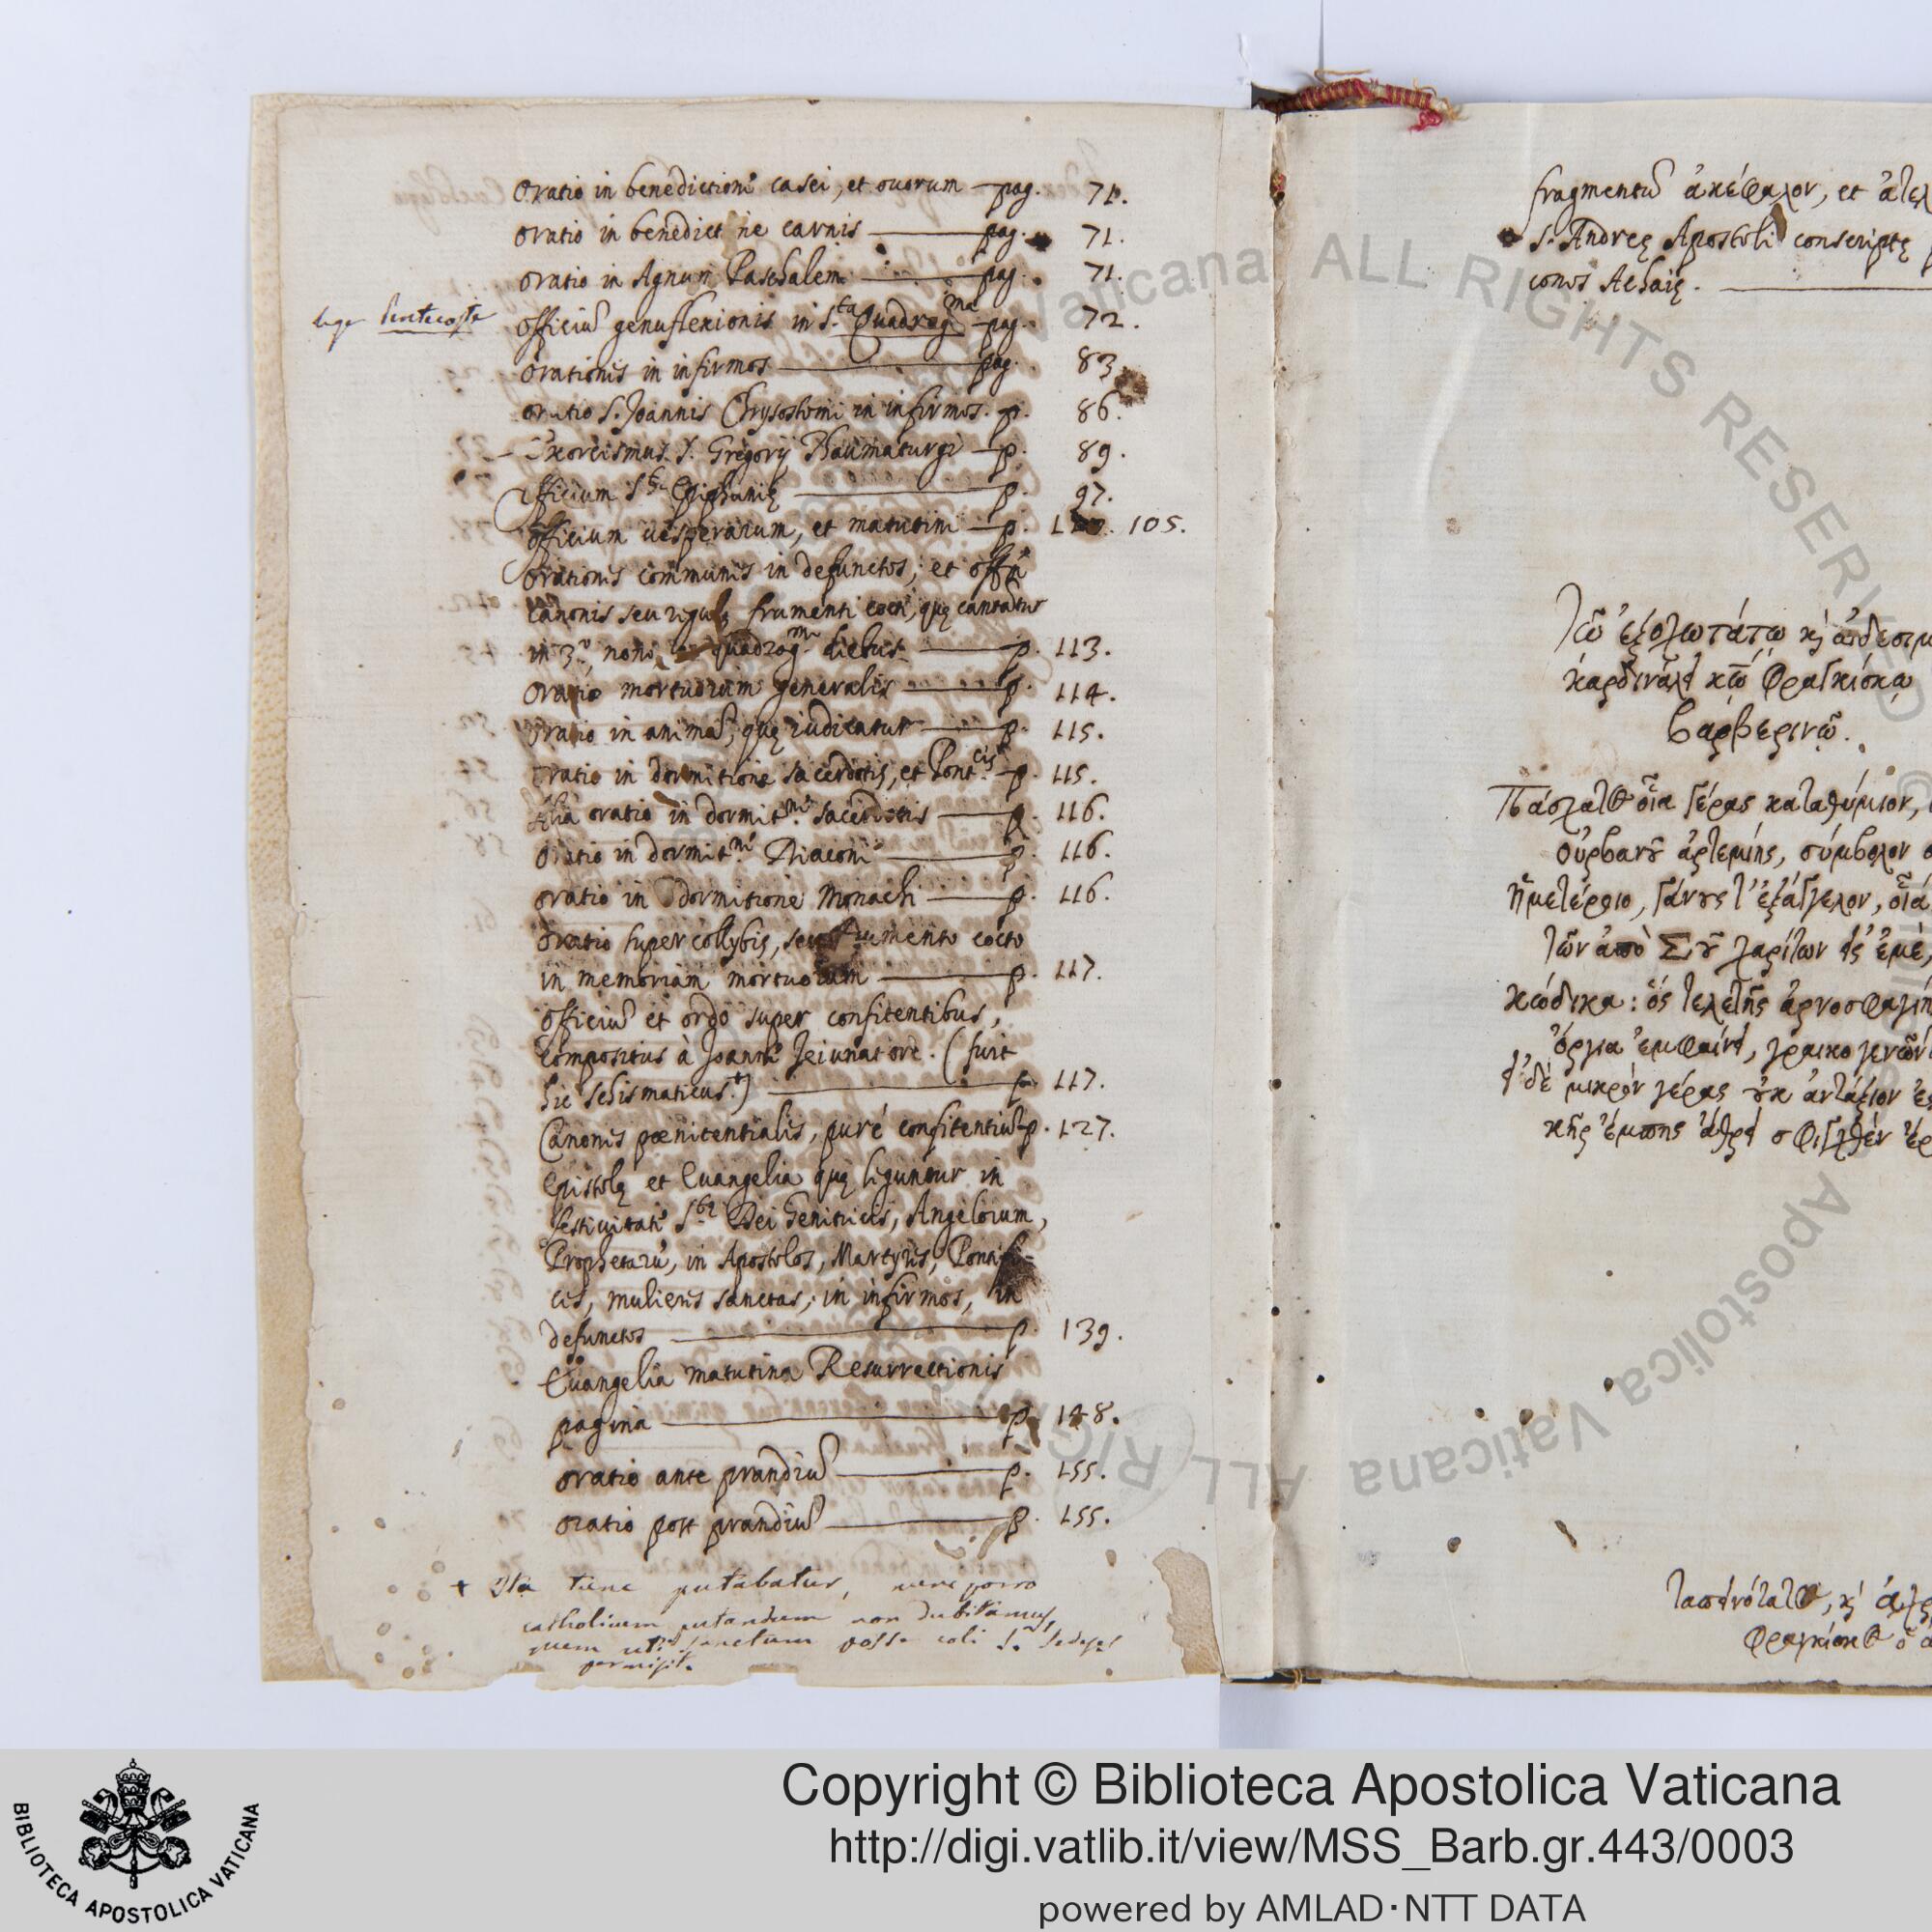 Oratio in benedictione casei, et ovorum — pag. 71.
Oratio in benedictione carnis — pag. 71.
Oratio in Agnum Paschalem — pag. 71.
lege Pentecoste
Officiũ genuflexionis in S.ta Quadrag.ma — pag. 72.
Orationes in infirmos — pag. 83.
Oratio S. Joannis Chrysostomi in infirmos. p. 86.
Exorcismus S. Gregorij Thaumaturgi — p. 89.
Officium S.te Epiphanię — p. 97.
Officium vesperarum, et matutini — p. 105.
Orationes communes in defunctos, et
Canonis seu regulę frumenti cocti, quę cantatur
in 3.o, nono, quadrag.mo diebus — p. 113.
Oratio mortuorum generalis — p. 114.
Oratio in animã, quę iudicatur — p. 115.
Oratio in dormitione sacerdotis, et Pont.cis — p. 115.
Alia oratio in dormit.ne sacerdotis — p. 116.
Oratio in dormit.ne Diaconi — p. 116.
Oratio in dormitione Monachi — p. 116.
Oratio super collybis, seu frumento cocto
in memoriam mortuorum — p. 117.
Officiũ et ordo super confitentibus,
compositus à Joanne Jeiunatore. (fuit
hic schismaticus.+) — p. 117.
Canones pœnitentiales, puré confitentiũ p. 127.
Epistolę et Evangelia quę leguntur in
festivitate S.tę Dei Genitricis, Angelorum,
Prophetarũ, in Apostolos, Martyres, Pontifi-
ces, mulieres sanctas, in infirmos, in
defunctos — p. 139.
Evangelia matutina Resurrectionis
pagina — p. 148.
Oratio ante prandiũ — p. 155.
Oratio post prandiũ — p. 155.
+ Ita tunc putabatur, nunc porro
catholicum putandum non dubitamus,
quem uti sanctum posse coli S. Sedes
permisit.
fragmentũ ἀκέφαλον, et ἀτελ
S. Andreę Apostoli conscriptę
conos Achaię.
Τῷ ἐξοχωτάτῳ κὶ αἰδεσιμ
καρδινάλει κῷ Φραγκίσκῳ
Βαρβερινῷ.
οὐρβανοῦ ἀρτεμὴς, σύμβολον
τῶν ἀπὸ Σοῦ χαρίτων εἰς ἐμέ,
κώδικα: ὅς τελετῆς ἀρνοσφαγίη
ὄργια ἐμφαίνει,
μικρόν γέρας οὐκ ἀντάξιον
ALL RIGHTS RESERVED © Biblioteca Apostolica Vaticana
Copyright © Biblioteca Apostolica Vaticana
http://digi.vatlib.it/view/MSS_Barb.gr.443/0003
powered by AMLAD·NTT DATA
BIBLIOTECA APOSTOLICA VATICANA